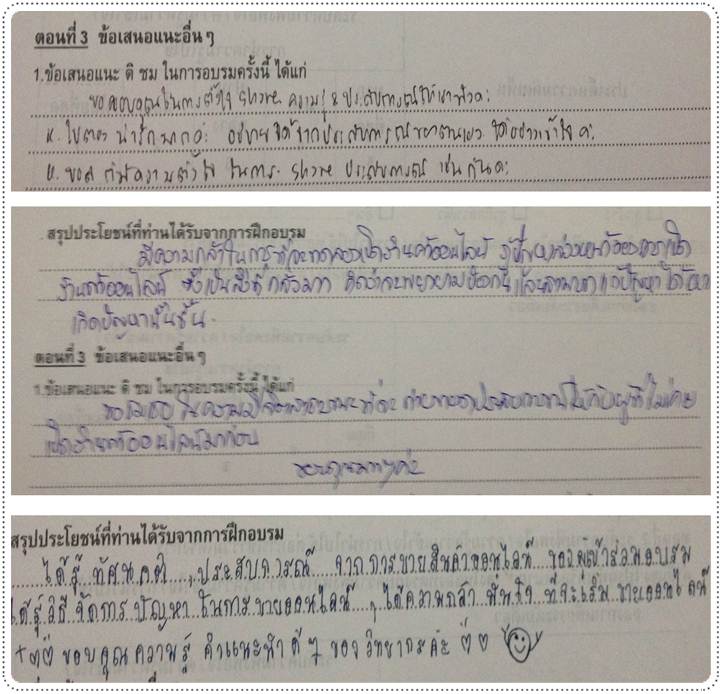 ตอนที่ 3 ข้อเสนอแนะอื่น ๆ
1.ข้อเสนอแนะ ติ ชม ในการอบรมครั้งนี้ ได้แก่
ขอขอบคุณในการตั้งใจ share ความรู้ & ประสบการณ์ให้
น่ารักมากค่ะ อธิบาย จากประสบการณ์ของตนเอง ได้อย่างเข้าใจ ค่ะ
ความตั้งใจ ในการ share ประสบการณ์ เช่นกันค่ะ
สรุปประโยชน์ที่ท่านได้รับจากการฝึกอบรม
มีความกล้าในการที่จะทดลองเปิดร้านค้าออนไลน์ รู้ปัญหา
ร้านค้าออนไลน์ ซึ่งเป็นสิ่งที่กลัวมาก คิดว่าจะพยายาม แก้ปัญหาได้
เกิดปัญหานั้นขึ้น
ตอนที่ 3 ข้อเสนอแนะอื่น ๆ
1.ข้อเสนอแนะ ติ ชม ในการอบรมครั้งนี้ ได้แก่
ขอชมเชย ในความ ถ่ายทอดประสบการณ์ให้กับผู้ที่ไม่เคย
เปิดร้านค้าออนไลน์มาก่อน
ขอบคุณมากๆค่ะ
สรุปประโยชน์ที่ท่านได้รับจากการฝึกอบรม
ได้รู้ ทัศนคติ , ประสบการณ์ จากการขายสินค้าออนไลน์ ของผู้เข้าร่วมอบรม
ได้รู้วิธี จัดการปัญหา ในการขายออนไลน์ , ได้ความกล้า มั่นใจ ที่จะเริ่ม ขายออนไลน์
ขอบคุณ ความรู้ คำแนะนำ ดี ๆ ของ วิทยากรค่ะ